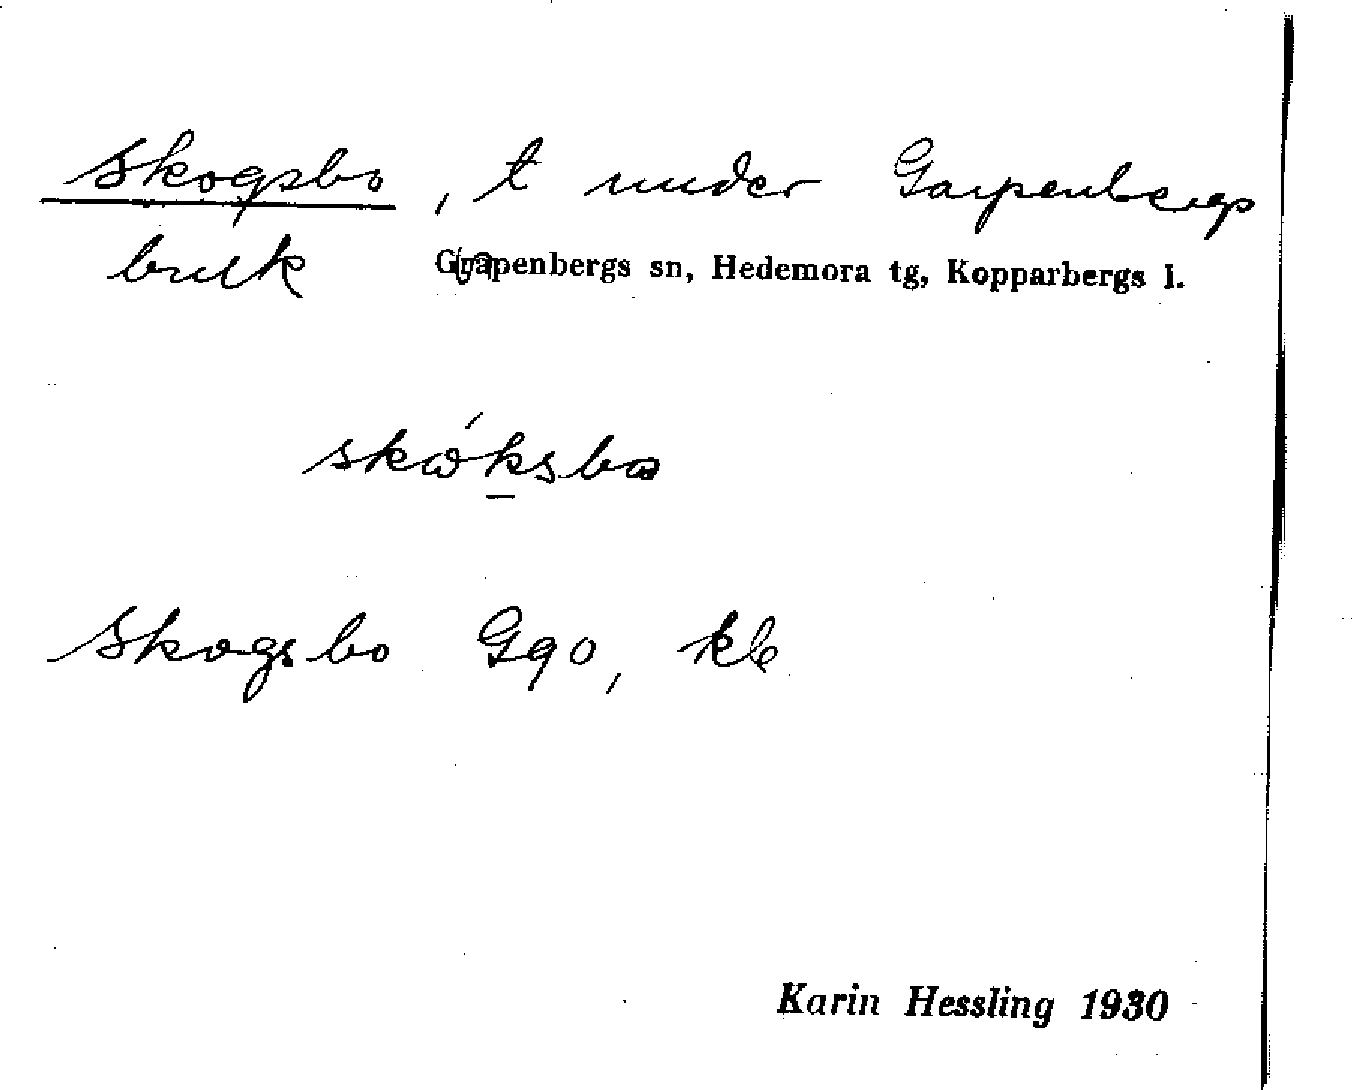 Skogsbo, t under Garpenbergs
bruk Grapenbergs sn, Hedemora tg, Kopparbergs l.
skώksbω
Skogsbo Gqo, kb
Karin Hessling 1930